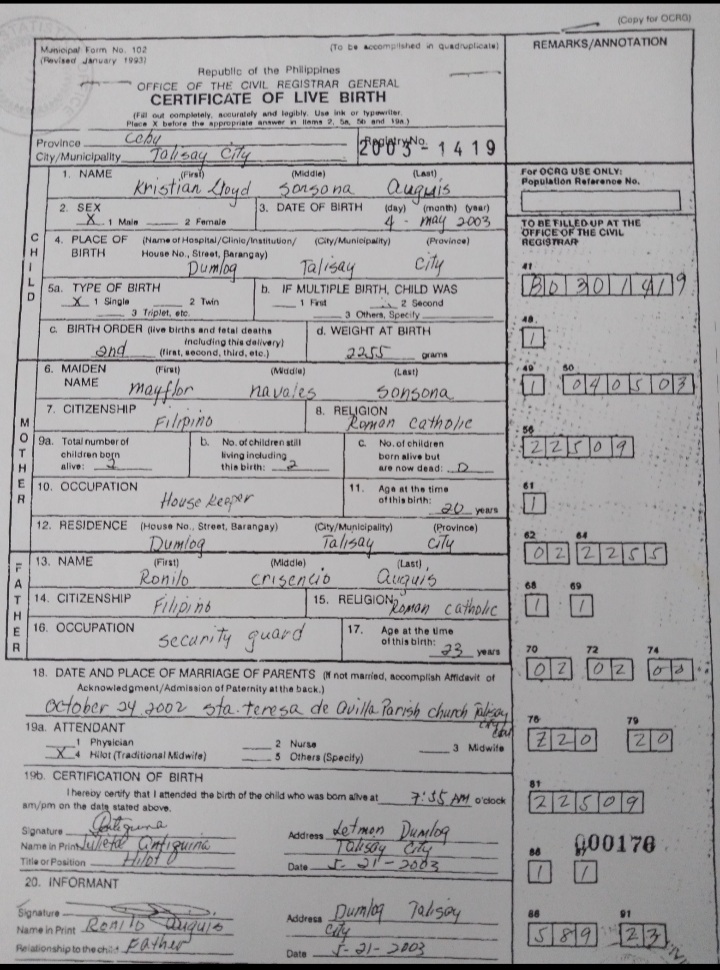 (Copy for OCRG)
Municipal Form No. 102 (To be accomplished in quadruplicate)
(Revised January 1993)
Republic of the Philippines
OFFICE OF THE CIVIL REGISTRAR GENERAL
CERTIFICATE OF LIVE BIRTH
(Fill out completely, accurately and legibly. Use ink or typewriter.
Place X before the appropriate answer in items 2, 5a, 5b and 19a.)
Province Cebu
City/Municipality Talisay City
Registry No. 2003-1419
1. NAME (First) (Middle) (Last)
Kristian Lloyd Sonsona Auguis
2. SEX
X 1 Male 2 Female
3. DATE OF BIRTH (day) (month) (year)
4 - May 2003
4. PLACE OF BIRTH (Name of Hospital/Clinic/Institution/ (City/Municipality) (Province)
House No., Street, Barangay)
Dumlog Talisay City
5a. TYPE OF BIRTH
X 1 Single 2 Twin
3 Triplet, etc.
b. IF MULTIPLE BIRTH, CHILD WAS
1 First 2 Second
3 Others, Specify
c. BIRTH ORDER (live births and fetal deaths
including this delivery)
2nd (first, second, third, etc.)
d. WEIGHT AT BIRTH
2255 grams
CHILD
6. MAIDEN NAME (First) (Middle) (Last)
Mayflor Navales Sonsona
7. CITIZENSHIP
Filipino
8. RELIGION
Roman Catholic
9a. Total number of
children born
alive: 2
b. No. of children still
living including
this birth: 2
c. No. of children
born alive but
are now dead: 0
10. OCCUPATION
House keeper
11. Age at the time
of this birth:
20 years
12. RESIDENCE (House No., Street, Barangay) (City/Municipality) (Province)
Dumlog Talisay City
MOTHER
13. NAME (First) (Middle) (Last)
Ronilo Crisencio Auguis
14. CITIZENSHIP Filipino
15. RELIGION Roman Catholic
16. OCCUPATION security guard
17. Age at the time
of this birth:
23 years
FATHER
18. DATE AND PLACE OF MARRIAGE OF PARENTS (If not married, accomplish Affidavit of
Acknowledgment/Admission of Paternity at the back.)
October 24 2002 Sta. Teresa de Avilla Parish church Talisay
19a. ATTENDANT
1 Physician 2 Nurse 3 Midwife
X 4 Hilot (Traditional Midwife) 5 Others (Specify)
19b. CERTIFICATION OF BIRTH
I hereby certify that I attended the birth of the child who was born alive at 7:35 AM o'clock
am/pm on the date stated above.
Signature
Name in Print Julieta Antiquina
Title or Position Hilot
Address Letmon Dumlog
Talisay City
Date 5-21-2003
20. INFORMANT
Signature
Name in Print Ronilo Auguis
Relationship to the child Father
Address Dumlog Talisay
City
Date 5-21-2003
REMARKS/ANNOTATION
For OCRG USE ONLY:
Population Reference No.
TO BE FILLED-UP AT THE
OFFICE OF THE CIVIL
REGISTRAR
41
B0301419
48
1
49 50
1 040503
56
22509
61
1
62 64
02 2255
68 69
1 1
70 72 74
02 02 00
76 79
720 20
81
22509
000176
86 87
1 1
88 91
589 23